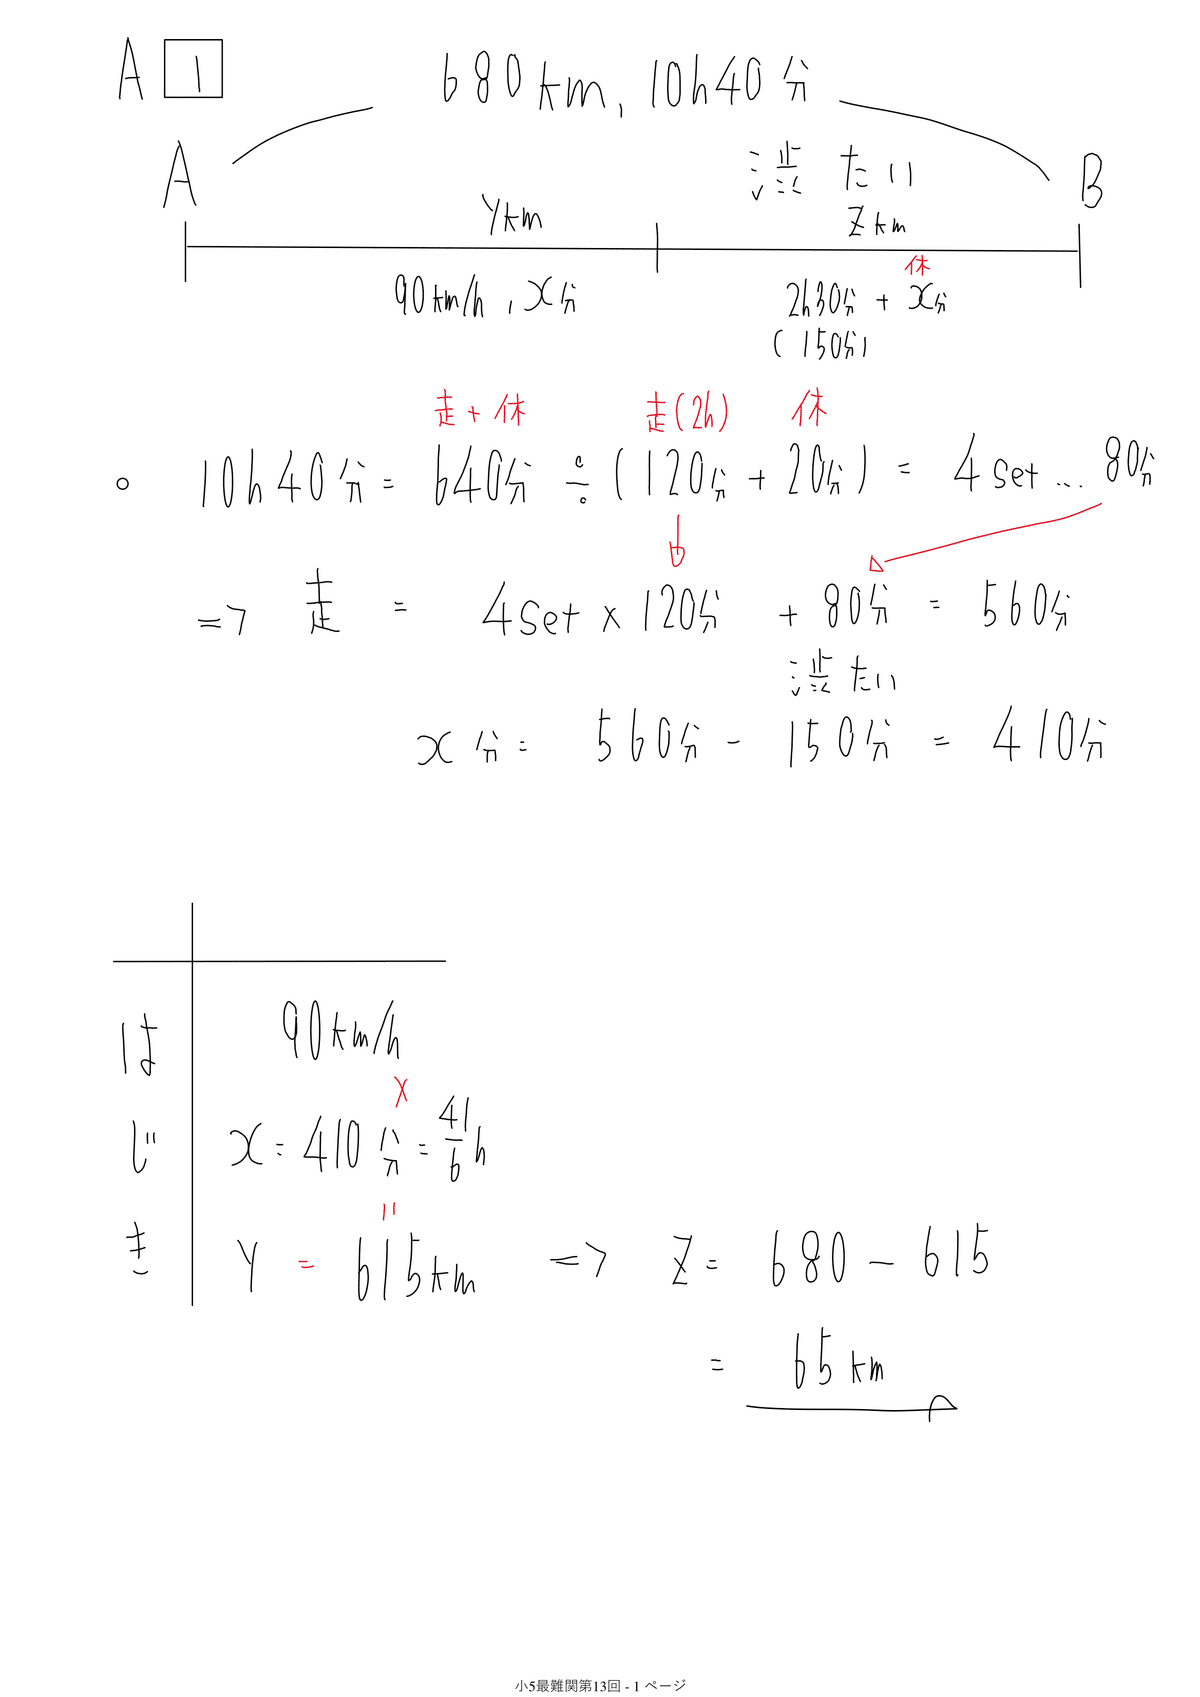 A 1
680km, 10h40分
A
B
渋たい
Ykm
Zkm
90km/h, x分
休
2h30分 + x分
(150分)
走+休 走(2h) 休
○ 10h40分 = 640分 ÷ (120分 + 20分) = 4set … 80分
=> 走 = 4set × 120分 + 80分 = 560分
渋たい
x分 = 560分 - 150分 = 410分
は 90km/h
×
じ x = 410分 = 41/6 h
=
き Y = 615km => Z = 680 - 615
= 65km
小5最難関第13回 - 1 ページ